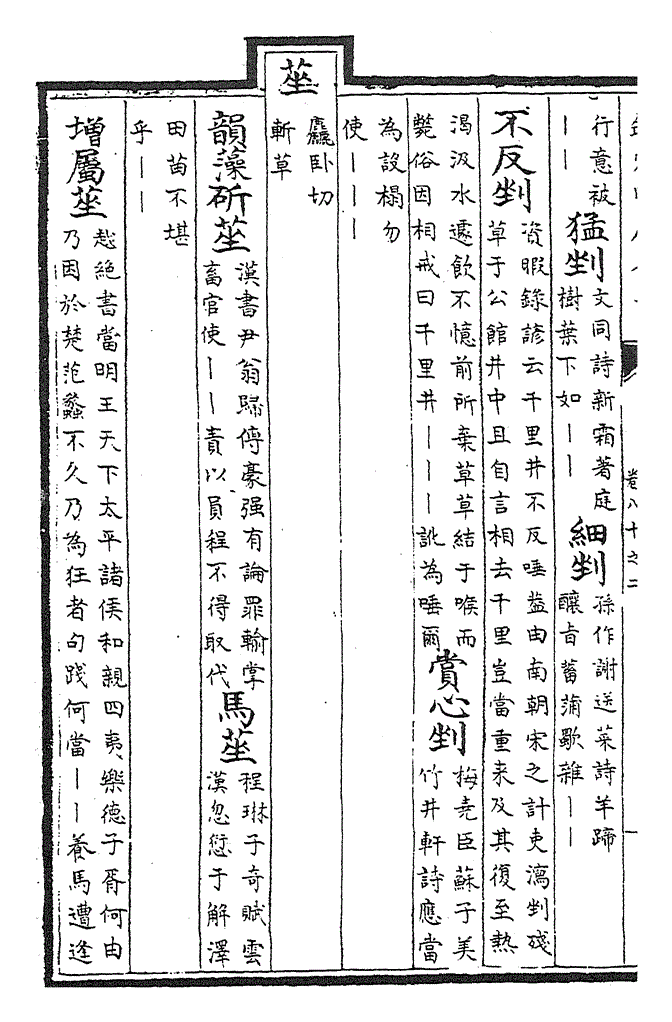 卷八十之二
行意被
｜｜
猛剉
文同詩新霜著庭
樹葉下如｜｜
細剉
孫作謝送菜詩羊蹄
釀旨蓄蒲歜雜｜｜
不反剉
資暇錄諺云千里井不反唾葢由南朝宋之計吏瀉剉殘
草于公館井中且自言相去千里豈當重来及其復至熱
渴汲水遽飲不憶前所棄草草結于喉而
斃俗因相戒曰千里井｜｜｜訛為唾爾
賞心剉
梅堯臣蘇子美
竹井軒詩應當
為設榻勿
使｜｜｜
莝
麤卧切
斬草
韻藻斫莝
漢書尹翁歸傳豪强有論罪輸掌
畜官使｜｜責以員程不得取代
馬莝
程琳子奇賦雲
漢忽愆于解澤
田苗不堪
乎｜｜
增屬莝
越絶書當明王天下太平諸侯和親四夷樂德子胥何由
乃因於楚范蠡不久乃為狂者句踐何當｜｜養馬遭逢